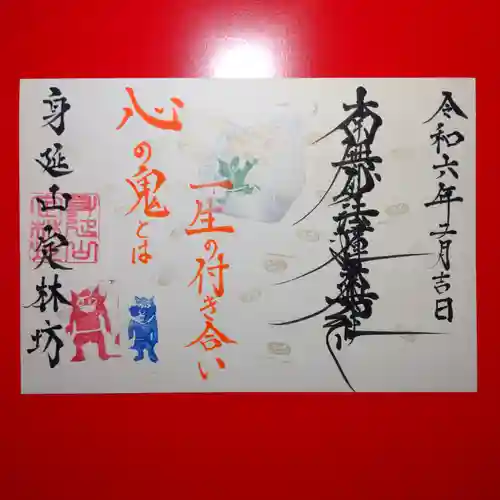 令和六年二月吉日
南無妙法蓮華経
心の鬼とは
一生の付き合い
身延山定林坊